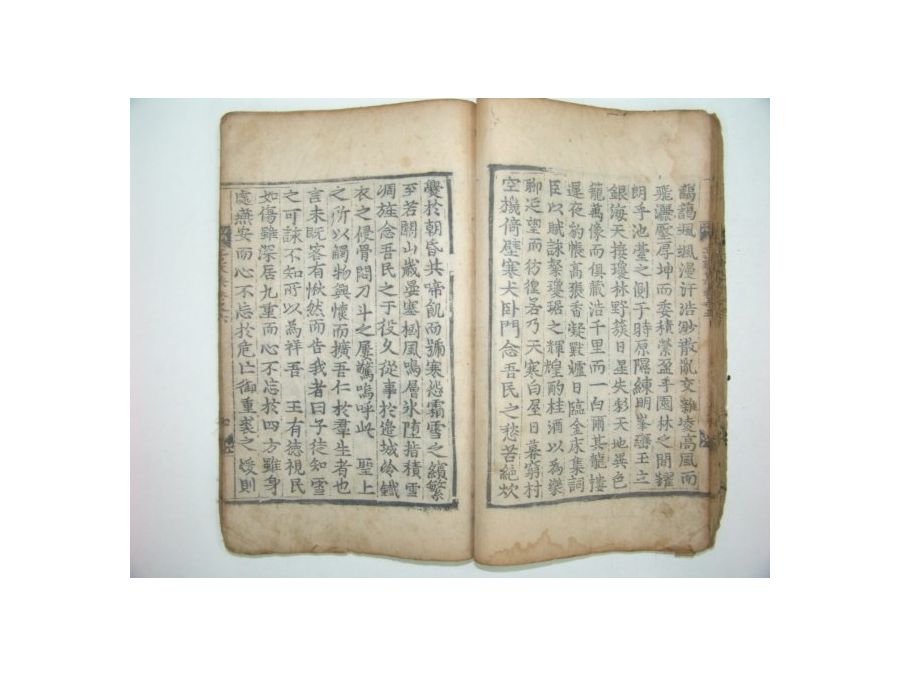 飄颻漫汗浩渺散亂交離凌高風而
飛灑壓厚坤而委積縈盈乎園林之間耀
朗乎池臺之側于時原隰練明峯巒玉立
銀海天接瓊林野簇日星失彩天地異色
籠萬像而俱藏浩千里而一白爾其龍樓
邃夜豹帳高褰香凝戰爐日臨金床集詞
臣以賦詠繫瓊琚之輝煌酌桂酒以為樂
聊逞望而彷徨若乃天寒白屋日暮窮村
空機倚壁寒犬臥門念吾民之愁苦絶炊
爨於朝昏共啼飢而號寒恐霜雪之繽繁
至若關山歲晏塞榧風鳴層氷墮指積雪
凋旌念吾民之于役久從事於邊城岭鐵
衣之侵骨悶刀斗之屢驚嗚呼此　聖上
之所以觸物興懷而擴吾仁於羣生者也
言未既客有愀然而告我者曰子徒知雪
之可詠不知所以為祥吾　王有德視民
如傷雖深居九重而心不忘於四方雖身
處燕安而心不忘於危亡御重裘之燠則